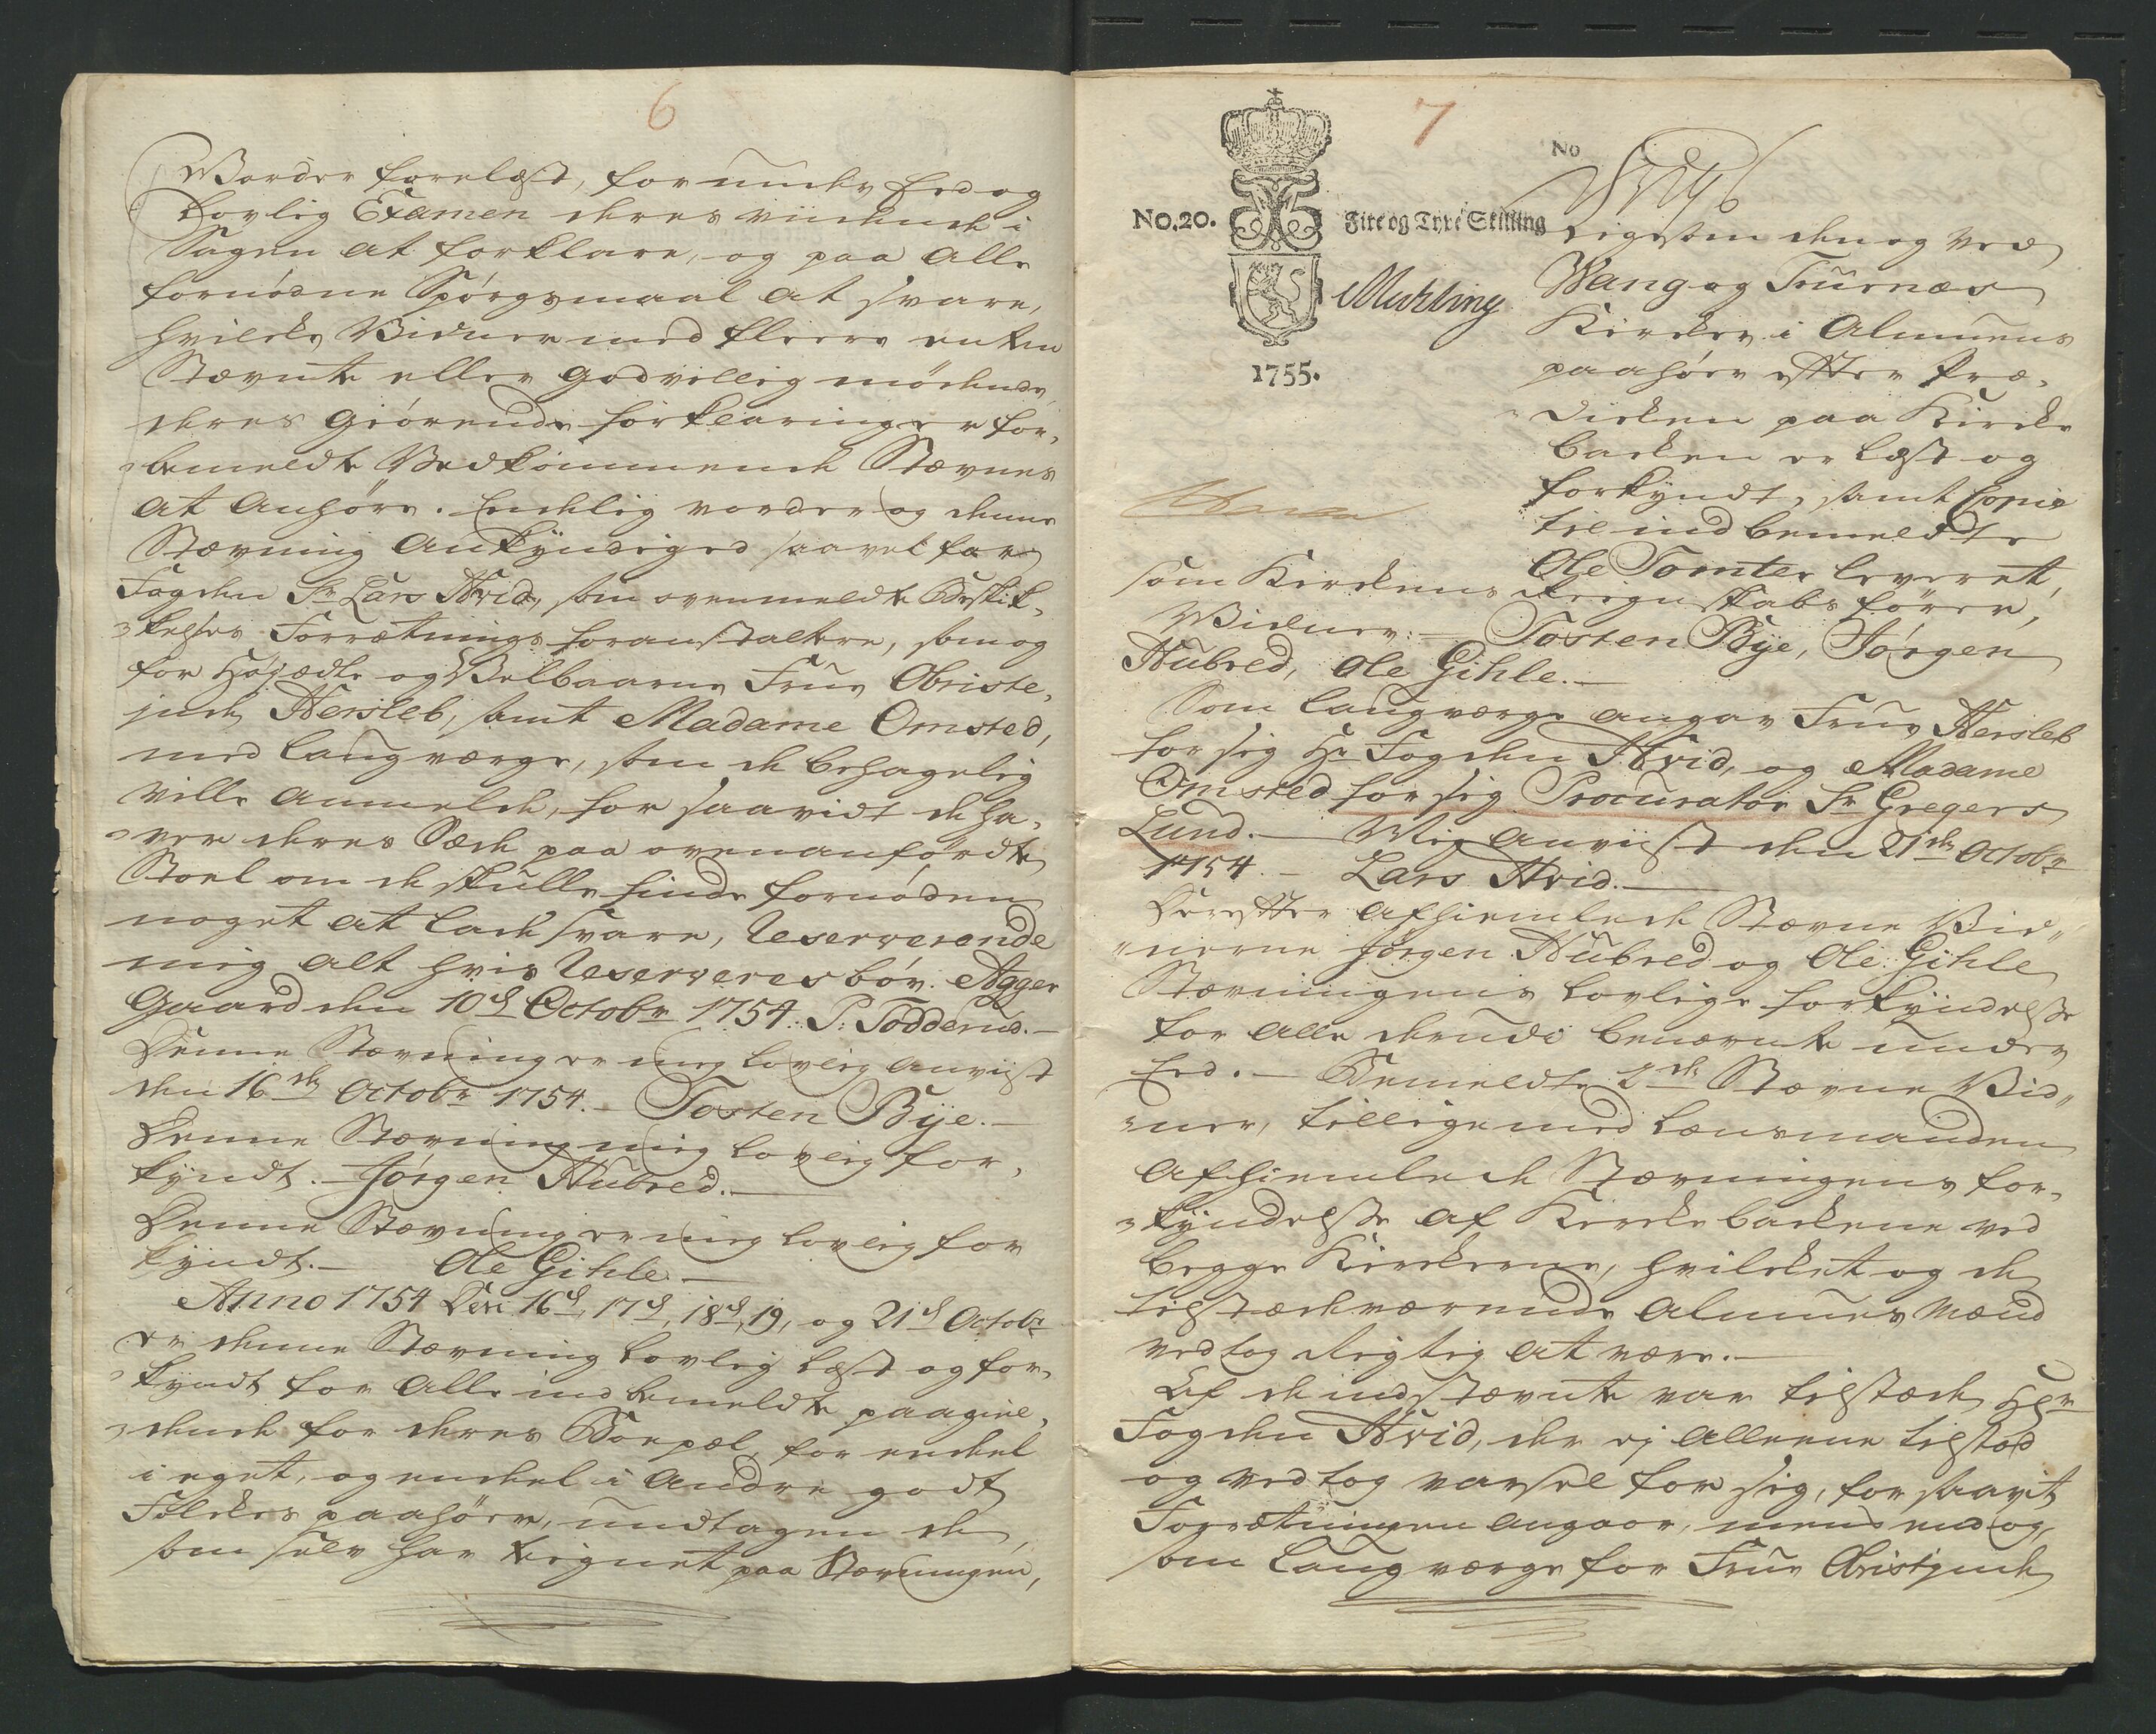 6
Vorder forelæst, for under Eed og
Lovlig Examen deres viidende i
Sagen at forklare, og paa alle
fornødne Spørgsmaal at svare,
hvilcke Vidner med fleere enten
Stævnte eller godvillig mødende,
deres giørende forklaringer for-
bemeldte Vedkommende Stævnes
at anhøre. Endelig vorder og denne
Stævning ankyndiget saavel for
Fogden Sr Lars Hvid, som ovenmeldte Bestik-
kelses Forrætnings foranstaltere, som og
for Høyædle og Velbaarne Frue Obriste-
inde Hersleb, samt Madame Omsted,
med laugværge, som de behagelig
ville anmelde, for saavidt de ha-
ver deres Sæde paa ovenanførdte
Stoel om de skulle finde fornøden
noget at lade svare, Reserverende
mig alt hvis Reserveres bør. Agger
Gaard den 10de Octobr 1754. P: Todderud.
Denne Stævning er mig lovlig anviist
den 16de Octobr 1754. Tosten Bÿe.
Denne Stævning mig lovlig for-
kyndt. Jørgen Hubred.
Denne Stævning er mig lovlig for
kyndt. Ole Gihle
Anno 1754 Den 16de, 17de, 18de, 19, og 21de Octobr
er denne Stævning lovlig læst og for-
kyndt for alle indbemeldte paagiel-
dende for deres Boepæl, for endel
i eget, og endel i andre godt
Folckes paahør, undtagen de
som selv har teignet paa Stævningen,
7
No
No. 20.
Fire og Tyve Skilling
1755.
ligesom den og ved
Wang og Fürnæs
Kircker i Almuens
paahør efter Præ-
dicken paa Kircke
backen er læst og
forkyndt, samt Copie
til indbemeldte
Ole Tomter leveret,
som Kirckens Reignskabsfører,
Vidner: Tosten Bÿe, Jørgen
Hubred, Ole Gihle.
Som laugværge angav Frue Hersleb
for sig Hr Fogden Hvid, og Madame
Omsted for sig Procurator Sr Gregers
Lund. Mig anviist den 21de Octobr
1754. Lars Hvid.
Derefter afhiemlede Stævne Vid-
nerne Jørgen Hubred og Ole Gihle
Stævningens lovlige forkyndelse
for alle derudi benævnte under
Eed. Bemeldte 2de Stævne Vid-
ner, tilligemed Lænsmanden
afhiemlede Stævningens for-
kyndelse af Kirckebackene ved
begge Kirckerne, hvilcket og de
tilstædeværende Almues Mænd
vedtog Rigtig at være.
Af de indstævnte var tilstæde Hr
Fogden Hvid, der ej alleene tilstod
og vedtog varsel for sig, for saavit
Forrætningen angaar, mens end og
som laugværge for Frue Obristinde